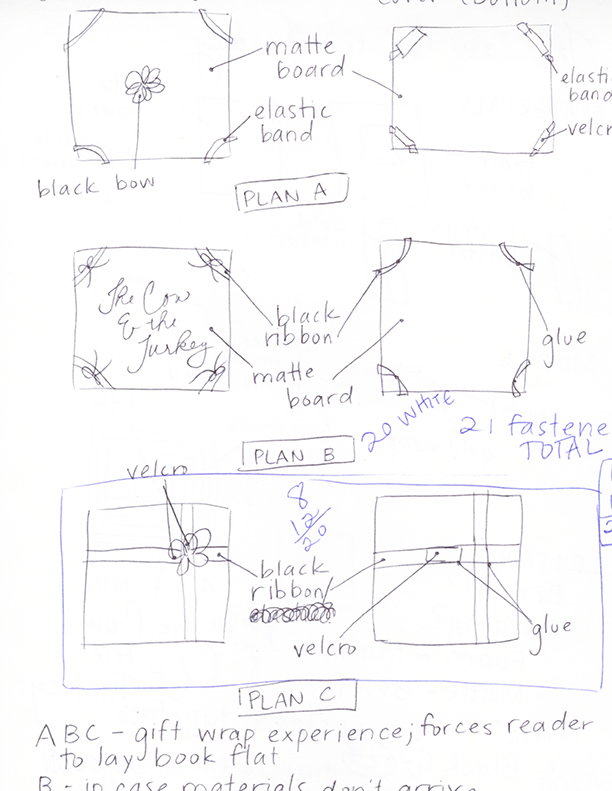 cover (bottom)
matte
board
elastic
band
elasti
band
velcr
black bow
PLAN A
The Cow
& the
Turkey
black
ribbon
glue
matte
board
PLAN B
20 WHITE
21 fastene
TOTAL
velcro
8
12
20
black
ribbon/
velcro
glue
PLAN C
ABC - gift wrap experience; forces reader
to lay book flat
B - in case materials don't arrive